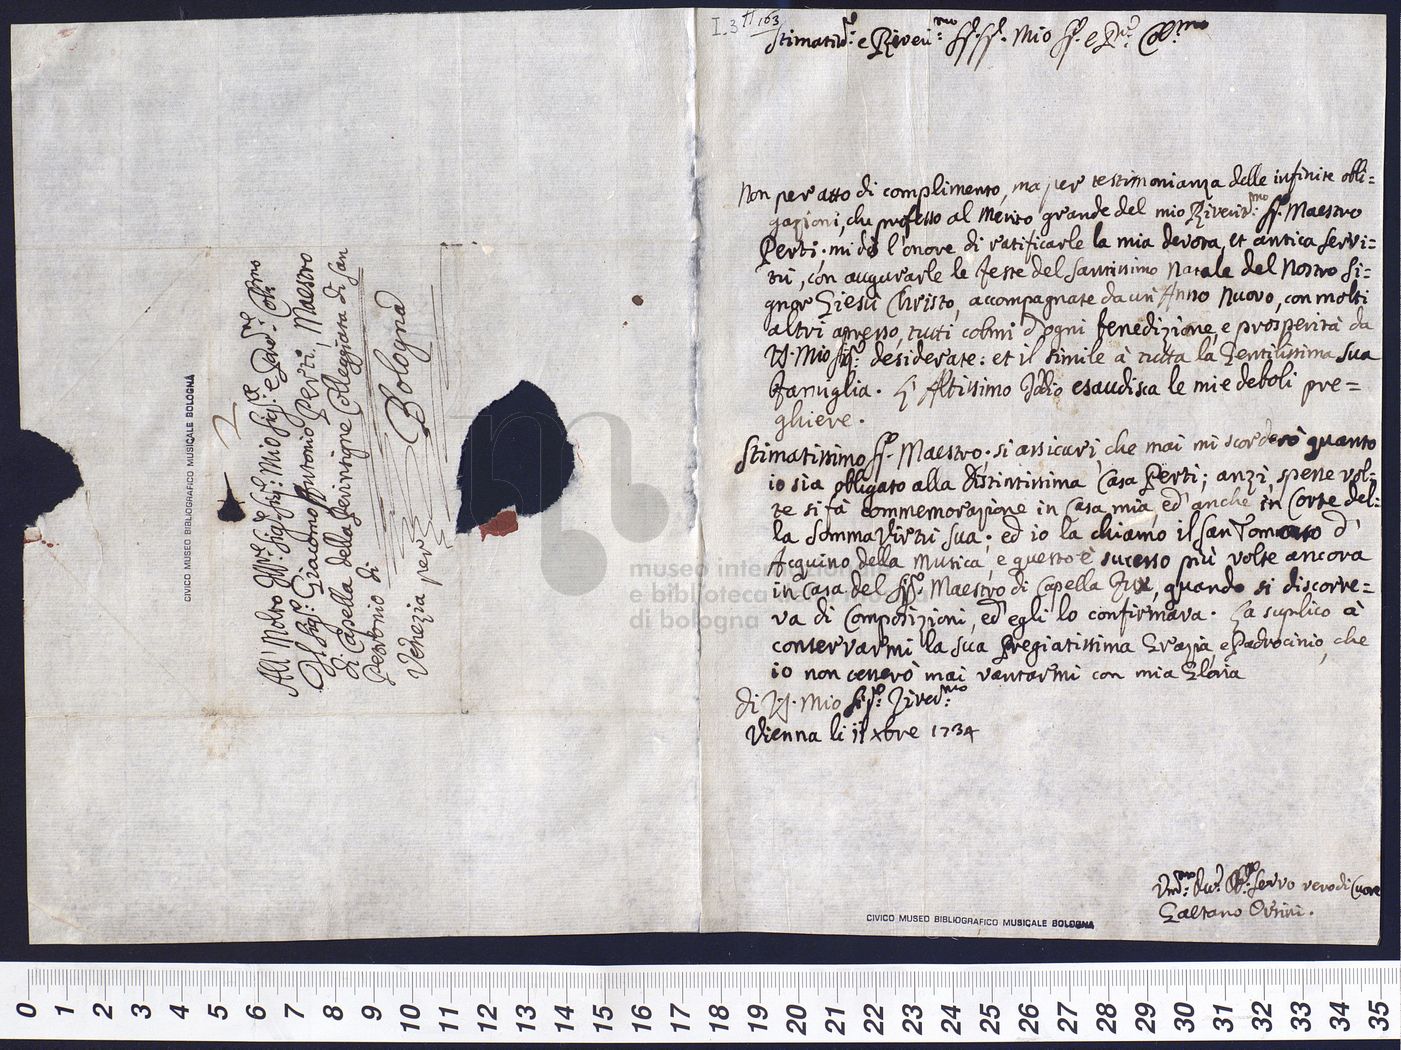 I.3 II 163
Stimatis.mo e Riveri.mo Sig.r Sig.r Mio Sig.r e P.ne Coll.mo
Non per atto di complimento, ma per testimonianza delle infinite obli=
gazioni, che professo al Merito grande del mio Riverit.mo Sig.r Maestro
Perti; mi dò l'onore di ratificarle la mia devota, et antica servi=
tù, con augurarle le feste del Santissimo Natale del Nostro Si=
gnor Giesù Christo, accompagnate da un'Anno Nuovo, con molti
altri apresso, tutti colmi d'ogni benedizione, e prosperità da
VS. Mio Sig.r desiderate: et il simile à tutta la Gentilissima sua
famiglia. L'Altissimo Iddio esaudisca le mie deboli pre=
ghiere.
Stimatissimo Sig.r Maestro; si assicuri, che mai mi scorderò quanto
io sia obligato alla Distintissima Casa Perti; anzi, spesse vol=
te si fà commemorazione in Casa mia, ed' anche in Corte del=
la somma Virtù sua; ed io la chiamo il San Tomaso d'
Acquino della Musica, e questo è sucesso più volte ancora
in Casa del Sig.r Maestro di Capella Fux, quando si discorre=
va di Composizioni, ed'egli lo confirmava. La suplico à
conservarmi la sua Pregiatissima Grazia, e Padrocinio, che
io non cesserò mai vantarmi con mia Gloria
di VS. Mio Sig.r River.mo
Vienna li 11 Xbre 1734
Um.mo Dev.mo Obl.mo Servo vero di Cuore
Gaetano Orsini.
CIVICO MUSEO BIBLIOGRAFICO MUSICALE BOLOGNA
All' Molto Ill.re Sig.r Sig.r Mio Sig.r e Pron.e Coll.mo
Il Sig.r Giacomo Antonio Perti, Maestro
di Capella della Perinsigne Collegiata di San
Petronio di
Bologna
Venezia per
CIVICO MUSEO BIBLIOGRAFICO MUSICALE BOLOGNA
museo internazionale
e biblioteca della musica
di bologna
0 1 2 3 4 5 6 7 8 9 10 11 12 13 14 15 16 17 18 19 20 21 22 23 24 25 26 27 28 29 30 31 32 33 34 35